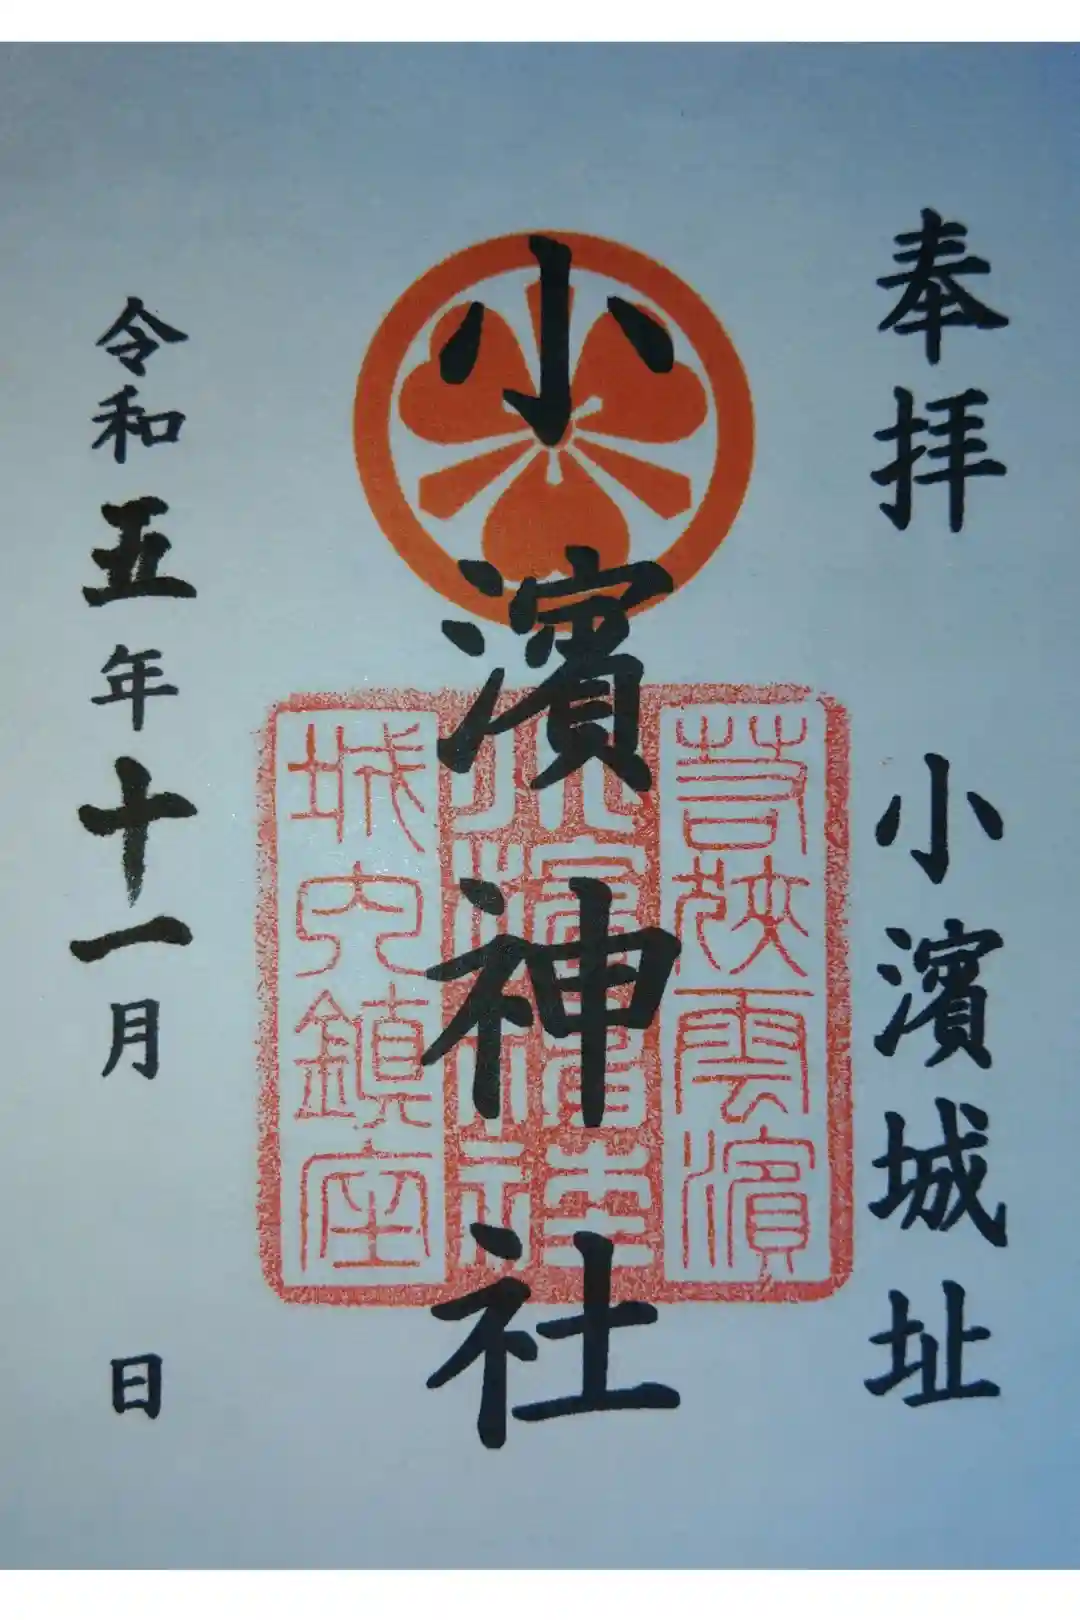 奉拝
小濱城址
小濱神社
若狹雲濱
小濱神社
城内鎮座
令和五年十一月 日